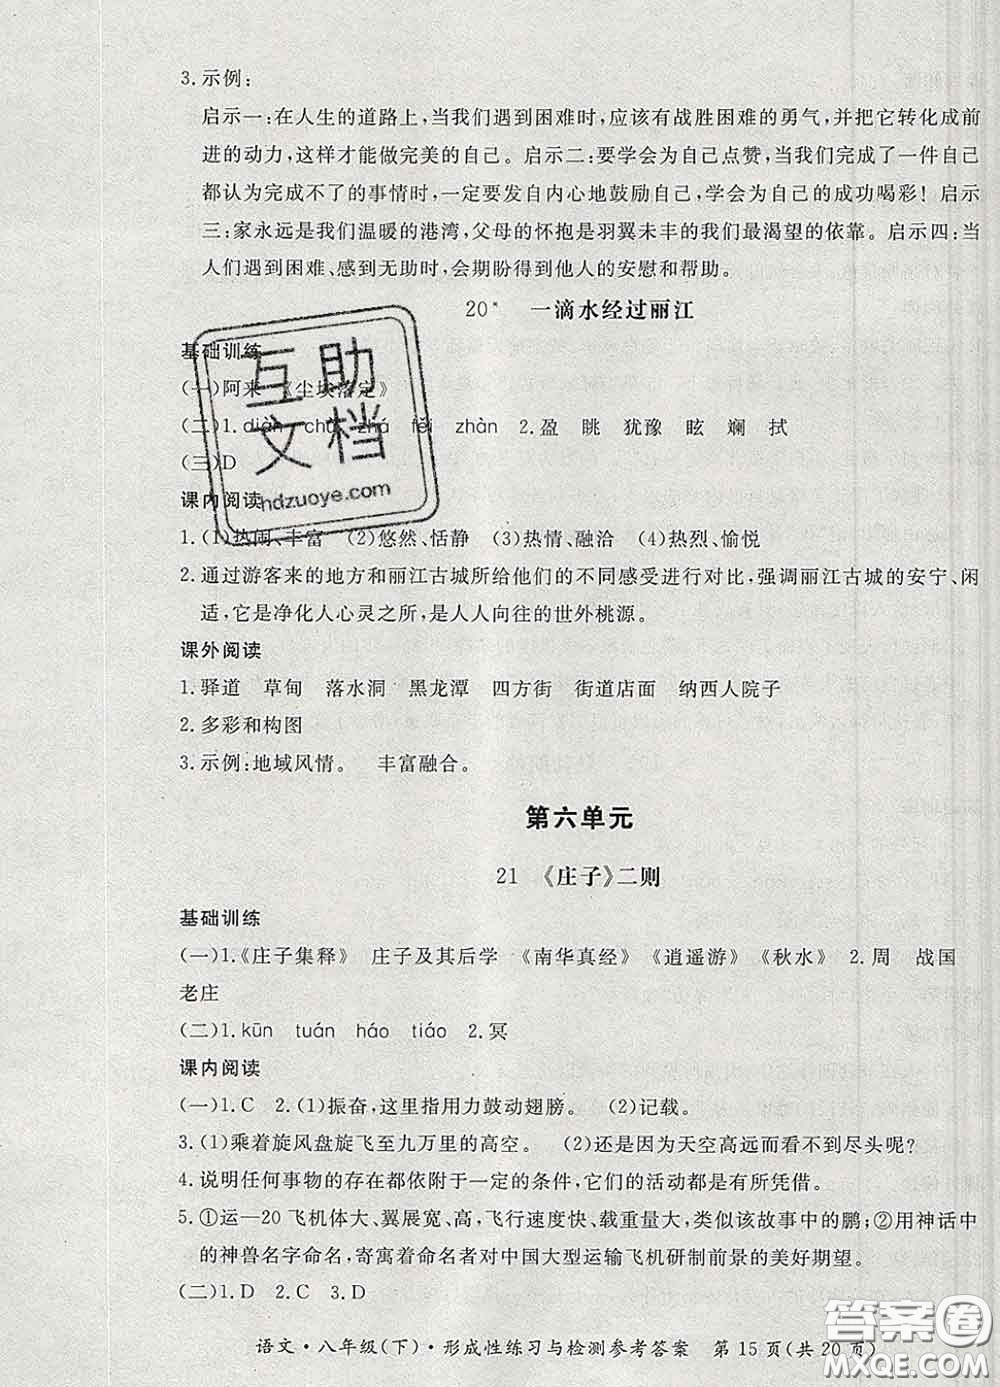 3.示例:
启示一:在人生的道路上,当我们遇到困难时,应该有战胜困难的勇气,并把它转化成前
进的动力,这样才能做完美的自己。启示二:要学会为自己点赞,当我们完成了一件自己
都认为完成不了的事情时,一定要发自内心地鼓励自己,学会为自己的成功喝彩！启示
三:家永远是我们温暖的港湾,父母的怀抱是羽翼未丰的我们最渴望的依靠。启示四:当
人们遇到困难、感到无助时,会期盼得到他人的安慰和帮助。
20* 一滴水经过丽江
基础训练
(一)阿来 《尘埃落定》
(二)1.diàn chú zhá fěi zhàn 2.盈 眺 犹豫 眩 斓 拭
(三)D
课内阅读
1.(1)热闹、丰富 (2)悠然、恬静 (3)热情、融洽 (4)热烈、愉悦
2.通过游客来的地方和丽江古城所给他们的不同感受进行对比,强调丽江古城的安宁、闲
适,它是净化人心灵之所,是人人向往的世外桃源。
课外阅读
1.驿道 草甸 落水洞 黑龙潭 四方街 街道店面 纳西人院子
2.多彩和构图
3.示例:地域风情。 丰富融合。
第六单元
21 《庄子》二则
基础训练
(一)1.《庄子集释》 庄子及其后学 《南华真经》《逍遥游》《秋水》 2.周 战国
老庄
(二)1.kūn tuán háo tiáo 2.冥
课内阅读
(一)1.C 2.(1)振奋,这里指用力鼓动翅膀。 (2)记载。
3.(1)乘着旋风盘旋飞至九万里的高空。 (2)还是因为天空高远而看不到尽头呢?
4.说明任何事物的存在都依附于一定的条件,它们的活动都是有所凭借。
5.①运—20飞机体大、翼展宽、高,飞行速度快、载重量大,类似该故事中的鹏;②用神话中
的神兽名字命名,寄寓着命名者对中国大型运输飞机研制前景的美好期望。
(二)1.D 2.C 3.D
语文·八年级(下)·形成性练习与检测参考答案 第15页(共20页)
互助
文档
hdzuoye.com
答案圈
MXQE.COM